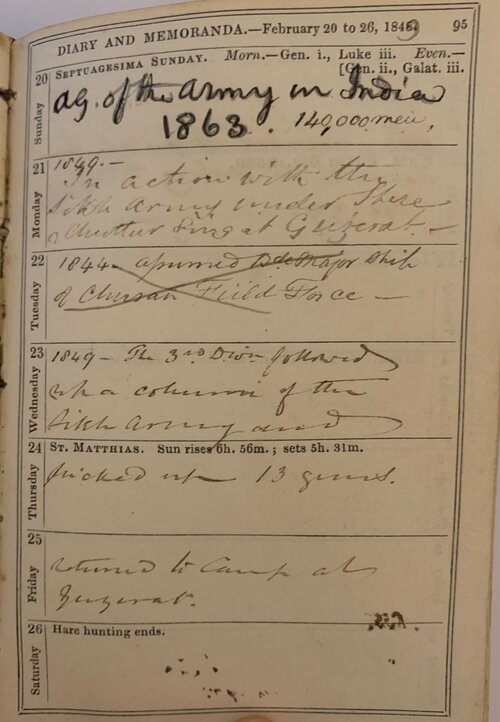 DIARY AND MEMORANDA.—February 20 to 26, 1848 95
20 SEPTUAGESIMA SUNDAY. Morn.—Gen. i., Luke iii. Even.—
[Gen. ii., Galat. iii.
Sunday
AG. of the Army in India
1863. 140,000 men,
21 1849.—
Monday
In action with the
Sikh Army under Shere
& Chuttur Sing at Guzerat.—
22 1844
Tuesday
Major
of Field Force —
23 1849 — The 3rd Divn followed
Wednesday
up a column of the
Sikh Army and
24 ST. MATTHIAS. Sun rises 6h. 56m.; sets 5h. 31m.
Thursday
picked up 13 guns.
25
Friday
returned to Camp at
Guzerat.
26 Hare hunting ends.
Saturday